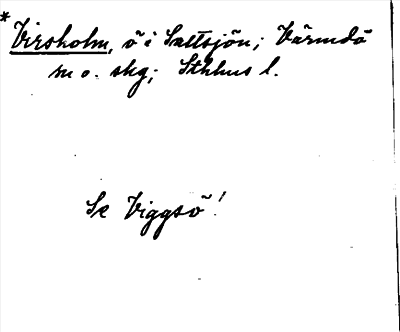 *Virsholm, ö i Saltsjön; Värmdö
sn o. skg; Sthlms l.
Se Viggsö!